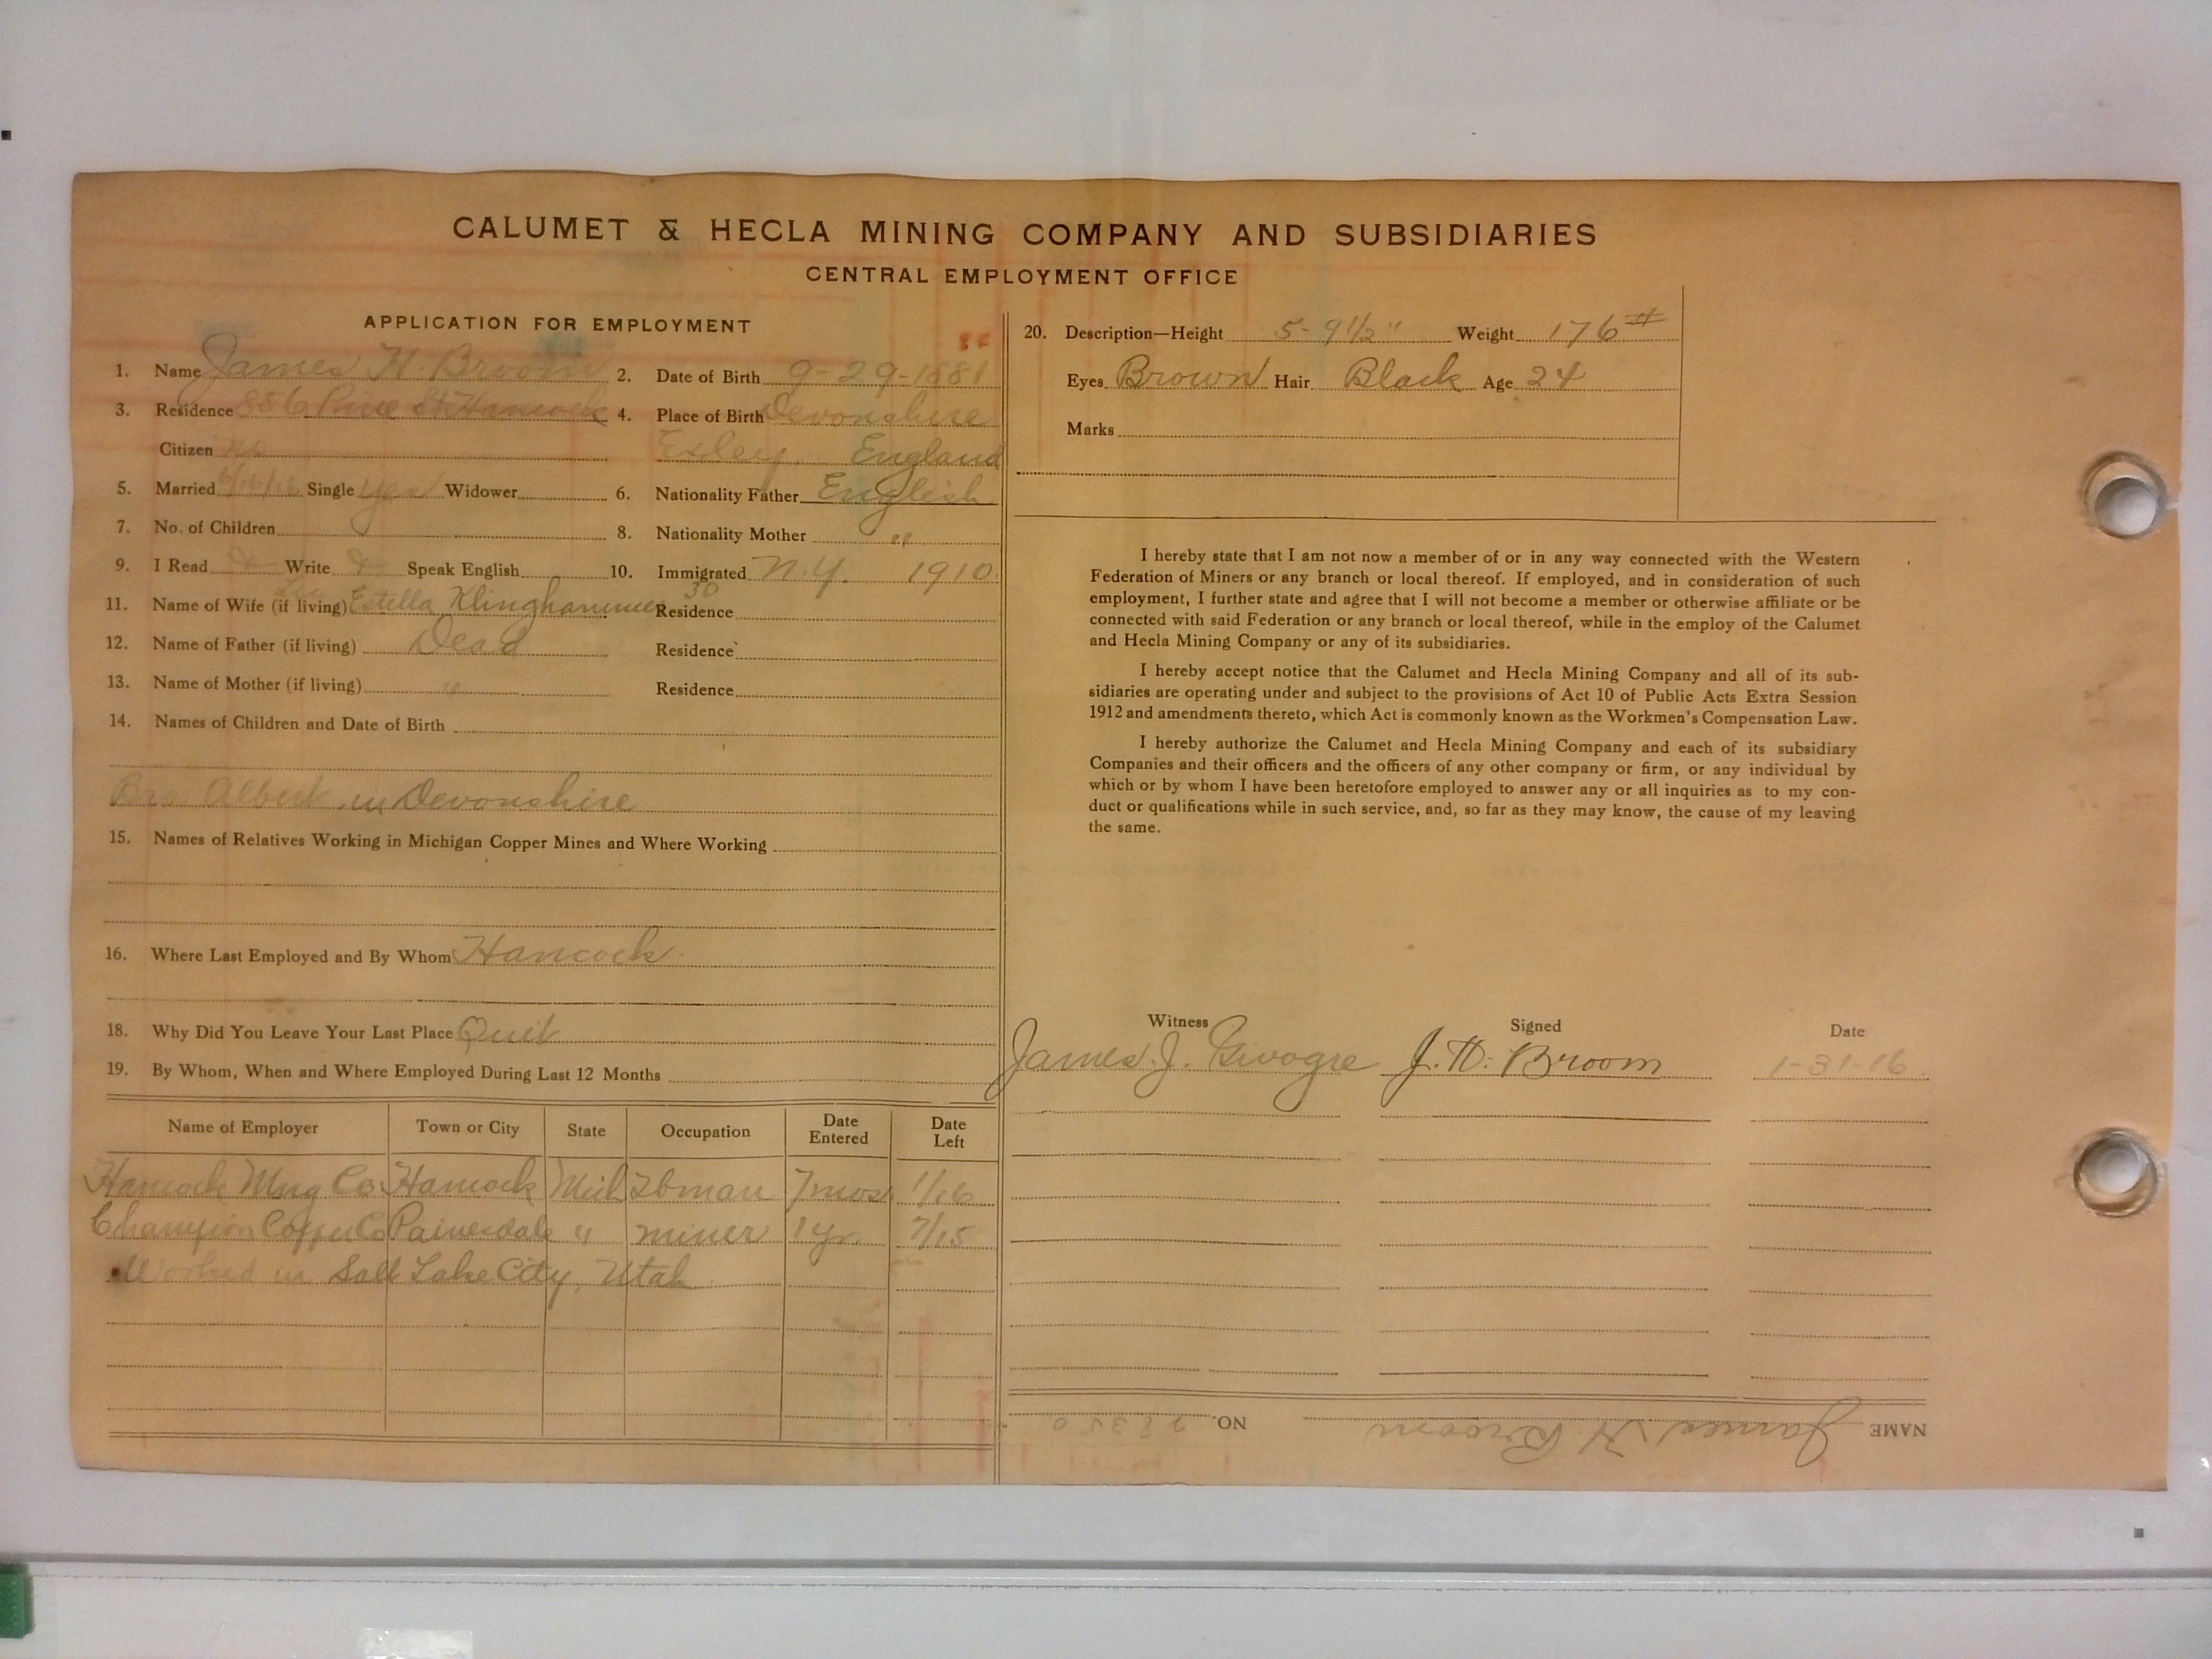 CALUMET & HECLA MINING COMPANY AND SUBSIDIARIES
CENTRAL EMPLOYMENT OFFICE
APPLICATION FOR EMPLOYMENT
1. Name James H. Broom 2. Date of Birth 9-29-1881
3. Residence 856 Pine St Hancock 4. Place of Birth Devonshire
Citizen No England
5. Married 6/16/16 Single Yes Widower 6. Nationality Father English
7. No. of Children 8. Nationality Mother "
9. I Read Write Speak English 10. Immigrated N.Y. 1910
11. Name of Wife (if living) Estella Klinghammer Residence
12. Name of Father (if living) Dead Residence
13. Name of Mother (if living) " Residence
14. Names of Children and Date of Birth
Bro. Albert in Devonshire
15. Names of Relatives Working in Michigan Copper Mines and Where Working
16. Where Last Employed and By Whom Hancock
18. Why Did You Leave Your Last Place Quit
19. By Whom, When and Where Employed During Last 12 Months
Name of Employer Town or City State Occupation Date Entered Date Left
Hancock Mng Co. Hancock Mich 7mos. 1/16
Champion Copper Co Painesdale " miner 1 yr. 7/15
Worked in Salt Lake City, Utah
20. Description—Height 5-9½" Weight 176#
Eyes Brown Hair Black Age 24
Marks
I hereby state that I am not now a member of or in any way connected with the Western
Federation of Miners or any branch or local thereof. If employed, and in consideration of such
employment, I further state and agree that I will not become a member or otherwise affiliate or be
connected with said Federation or any branch or local thereof, while in the employ of the Calumet
and Hecla Mining Company or any of its subsidiaries.
I hereby accept notice that the Calumet and Hecla Mining Company and all of its sub-
sidiaries are operating under and subject to the provisions of Act 10 of Public Acts Extra Session
1912 and amendments thereto, which Act is commonly known as the Workmen's Compensation Law.
I hereby authorize the Calumet and Hecla Mining Company and each of its subsidiary
Companies and their officers and the officers of any other company or firm, or any individual by
which or by whom I have been heretofore employed to answer any or all inquiries as to my con-
duct or qualifications while in such service, and, so far as they may know, the cause of my leaving
the same.
Witness Signed Date
James J. J. H. Broom 1-31-16
NAME James H Broom NO.